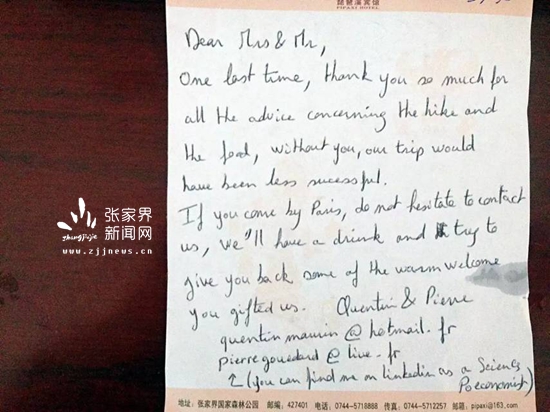 琵琶溪宾馆
PIPAXI HOTEL
Dear Mrs & Mr,
One last time, thank you so much for
all the advice concerning the hike and
the food, without you, our trip would
have been less sucessful.
If you come by Paris, do not hesitate to contact
us, we'll have a drink and try to
give you back some of the warm welcome
you gifted us. Quentin & Pierre
@ hotmail.fr
@ live.fr
(you can find me on linkedin as a Sciences
Po economist)
地址：张家界国家森林公园 邮编：427401 电话：0744-5718888 传真：0744-5712257 邮箱：pipaxi@163.com
张家界
新闻网
zhangjiajie
www.zjjnews.cn